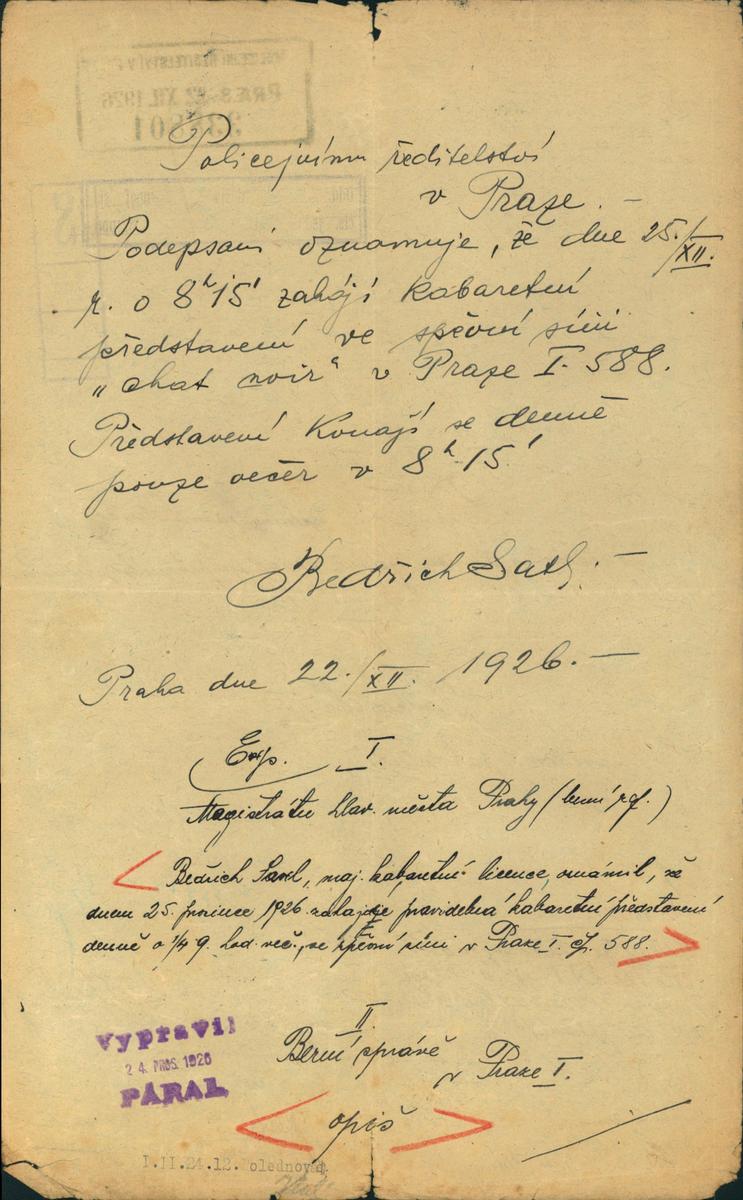 Policejnímu ředitelství
v Praze. —
Podepsaní oznamuje, že dne 25./XII.
r. o 8h 15' zahájí kabaretní
představení ve zpěvní síni
„chat noir“ v Praze I. 588.
Představení konají se denně
pouze večer v 8h 15'
Bedřich Saxl. —
Praha dne 22./XII. 1926. —
Exp. I.
Magistrátu hlav. města Prahy (berní ref.)
Bedřich Saxl, maj. kabaretní licence, oznámil, že
dnem 25. prosince 1926 zahajuje pravidelná kabaretní představení
denně o 1/4 9. hod. več., ve zpěvní síni v Praze I. čp. 588.
II.
Berní správě
v Praze I.
opis
Vypravil
24. PROS. 1926
PÁRAL
I.II.24.12.